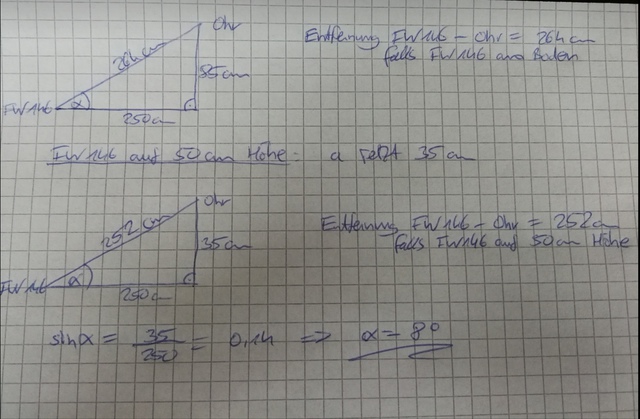 Ohr
Entfernung FW146 - Ohr = 264 cm
falls FW146 am Boden
264 cm
85 cm
FW146
α
250 cm
FW146 auf 50 cm Höhe: a 35 cm
Ohr
252 cm
Entfernung FW146 - Ohr = 252 cm
falls FW146 auf 50 cm Höhe
35 cm
FW146
α
250 cm
sin α = 35/250 = 0,14 => α = 8°